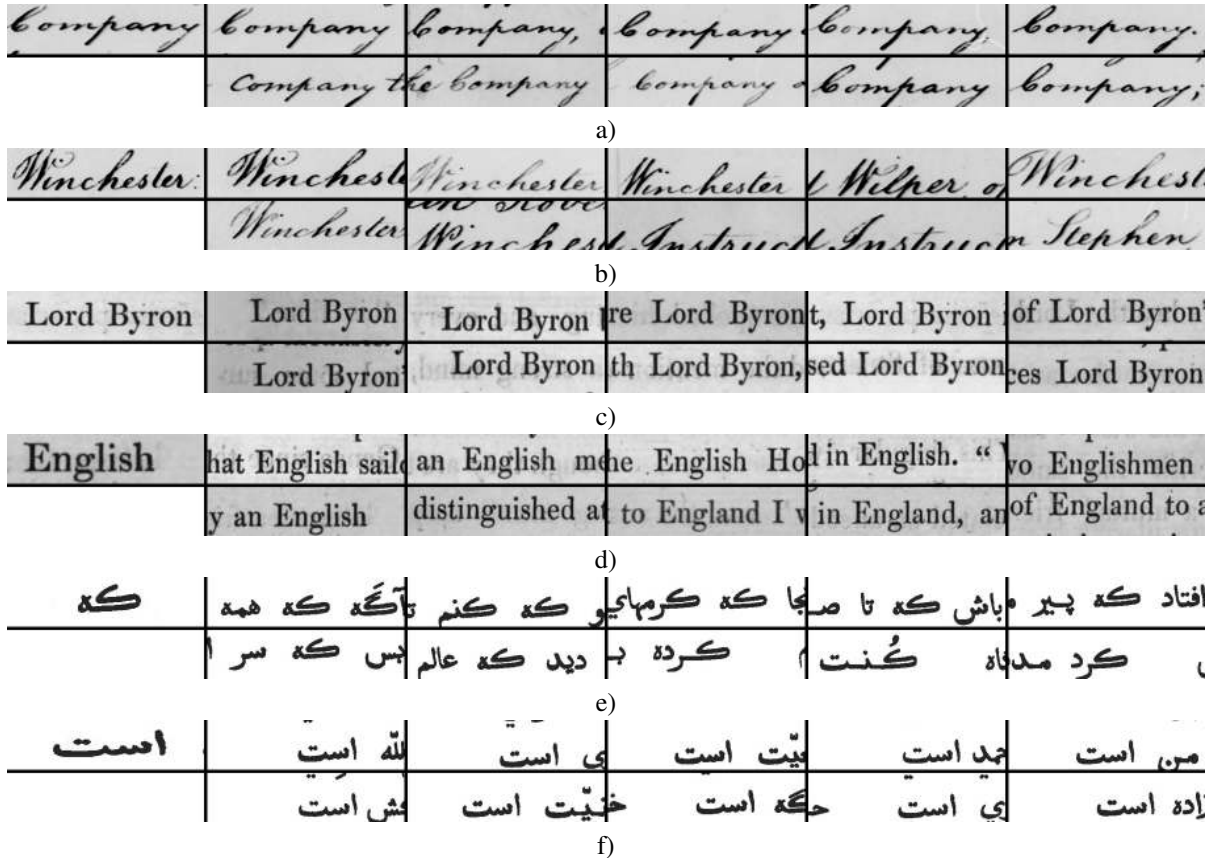 Company Company Company, Company Company, Company.
Company the Company Company Company Company;
a)
Winchester: Winchest Winchester Winchester Wilper Winchest
Winchester Winches Instruct Instruct Stephen
b)
Lord Byron Lord Byron Lord Byron re Lord Byron t, Lord Byron of Lord Byron'
Lord Byron' Lord Byron th Lord Byron, sed Lord Byron ces Lord Byron
c)
English hat English sail an English me he English Ho d in English. “ wo Englishmen
y an English distinguished at to England I in England, an of England to a
d)
که آگَه که همه و که کنم تا جا که کرمهای باش که تا صـ افتاد که پیر
بس که سر دید که عالم کرده بـ کُنت کرد مد
e)
است لله است ي است يّت است حمد است من است
است خنيّت است حگه است ي است زاده است
f)